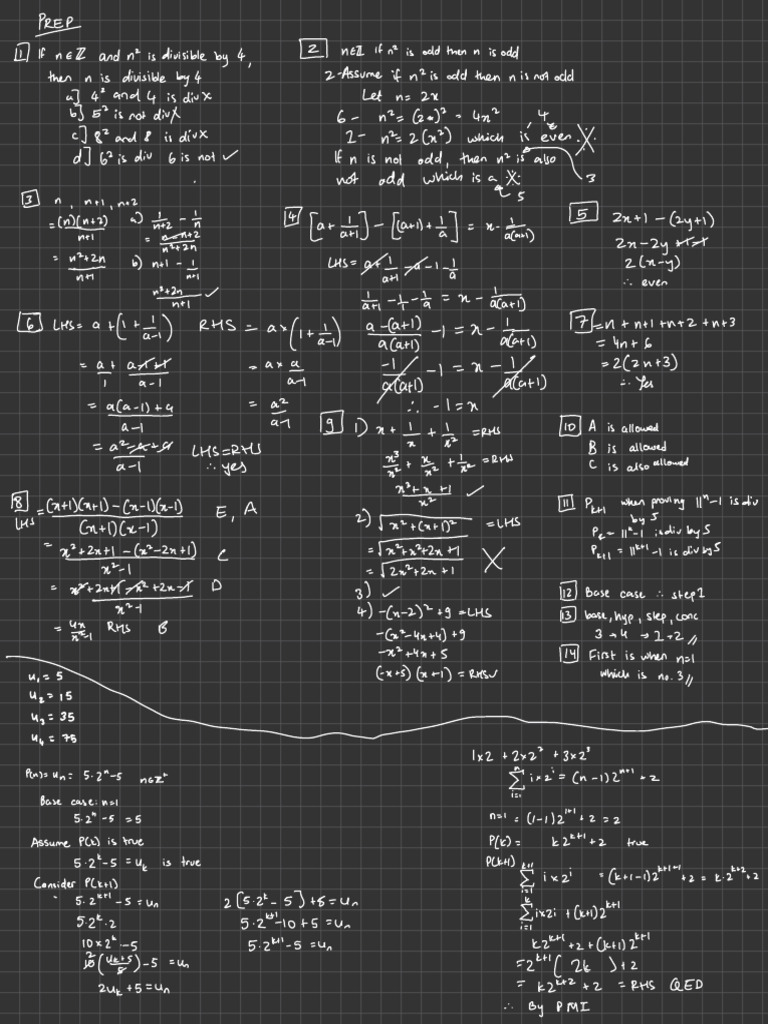 PREP
1 If n∈ℤ and n² is divisible by 4,
then n is divisible by 4
a] 4² and 4 is div X
b] 5² is not div X
c] 8² and 8 is div X
d] 6² is div 6 is not ✓
2 n∈ℤ if n² is odd then n is odd
2-Assume if n² is odd then n is not odd
Let n = 2x
6 - n² = (2x)² = 4x² 4
2 - n² = 2(x²) which is even X
If n is not odd, then n² is also 3
not odd which is a X
5
3 n, n+1, n+2
= (n)(n+2)/n+1 a) 1/n+2 - 1/n
= n-n+2/n²+2n
= n²+2n/n+1 b) n+1 - 1/n+1
n²+2n/n+1 ✓
4 [a + 1/a+1] - [(a+1) + 1/a] = x - 1/a(a+1)
LHS = a + 1/a+1 - a - 1 - 1/a
1/a+1 - 1/1 - 1/a = x - 1/a(a+1)
a-(a+1)/a(a+1) - 1 = x - 1/a(a+1)
-1/a(a+1) - 1 = x - 1/a(a+1)
∴ -1 = x
5 2x+1 - (2y+1)
2x-2y+1-1
2(x-y)
∴ even
6 LHS = a + (1 + 1/a-1) RHS = a × (1 + 1/a-1)
= a/1 + a-1+1/a-1 = a × a/a-1
= a(a-1)+a/a-1 = a²/a-1
= a²-a+a/a-1 LHS=RHS
∴ yes
7 = n + n+1 + n+2 + n+3
= 4n+6
= 2(2n+3)
∴ Yes
8 LHS = (x+1)(x+1) - (x-1)(x-1)/(x+1)(x-1) E, A
= x²+2x+1 - (x²-2x+1)/x²-1 C
= x²+2x+1-x²+2x-1/x²-1 D
= 4x/x²-1 RHS B
9 1) x + 1/x + 1/x² = RHS
x³/x² + x/x² + 1/x² = RHS
x³+x+1/x² ✓
2) √x²+(x+1)² = LHS
= √x²+x²+2x+1
= √2x²+2x+1 X
3) ✓
4) -(x-2)²+9 = LHS
-(x²-4x+4)+9
-x²+4x+5
(-x+5)(x+1) = RHS ✓
10 A is allowed
B is allowed
C is also allowed
11 Pk+1 when proving 11ⁿ-1 is div
by 5
Pk = 11ᵏ-1 is div by 5
Pk+1 = 11ᵏ⁺¹-1 is div by 5
12 Base case ∴ step 1
13 base, hyp, step, conc
3→4→1→2 //
14 First is when n=1
which is no. 3 //
u₁ = 5
u₂ = 15
u₃ = 35
u₄ = 75
P(n) = uₙ = 5·2ⁿ-5 n∈ℤ⁺
Base case: n=1
5·2ⁿ-5 = 5
Assume P(k) is true
5·2ᵏ-5 = uₖ is true
Consider P(k+1)
5·2ᵏ⁺¹-5 = uₙ
5·2ᵏ·2
10×2ᵏ-5
10²(uₖ+5/5)-5 = uₙ
2uₖ+5 = uₙ
2[5·2ᵏ-5]+5 = uₙ
5·2ᵏ⁺¹-10+5 = uₙ
5·2ᵏ⁺¹-5 = uₙ
1×2 + 2×2² + 3×2³
n∑i=1 i×2ⁱ = (n-1)2ⁿ⁺¹+2
n=1 = (1-1)2¹⁺¹+2 = 2
P(k) = k2ᵏ⁺¹+2 true
P(k+1)
k+1∑i=1 i×2ⁱ = (k+1-1)2ᵏ⁺¹⁺¹+2 = k·2ᵏ⁺²+2
k∑i=1 i×2ⁱ + (k+1)2ᵏ⁺¹
k2ᵏ⁺¹+2+(k+1)2ᵏ⁺¹
= 2ᵏ⁺¹(2k)+2
= k2ᵏ⁺²+2 = RHS QED
∴ By PMI